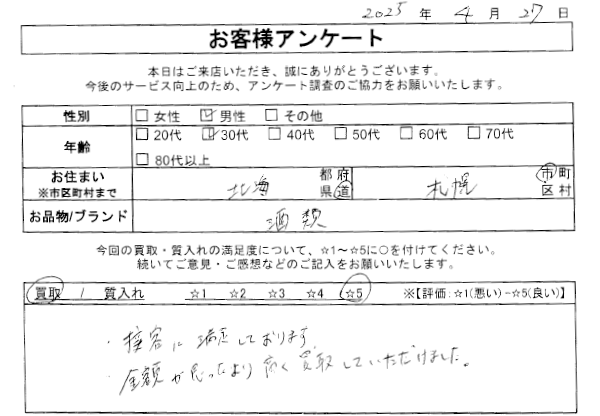 2025 年 4 月 27 日
お客様アンケート
本日はご来店いただき、誠にありがとうございます。
今後のサービス向上のため、アンケート調査のご協力をお願いいたします。
性別 □ 女性 ☑ 男性 □ その他
年齢 □ 20代 ☑ 30代 □ 40代 □ 50代 □ 60代 □ 70代
□ 80代以上
お住まい 北海 都 府 札幌 市 町
※市区町村まで 県 道 区 村
お品物/ブランド 酒類
今回の買取・質入れの満足度について、☆1~☆5に○を付けてください。
続いてご意見・ご感想などのご記入をお願いいたします。
買取 / 質入れ ☆1 ☆2 ☆3 ☆4 ☆5 ※【評価:☆1(悪い)-☆5(良い)】
・接客に満足しております。
・金額が思ったより高く買取していただけました。